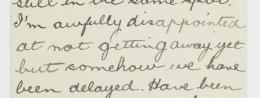 still in the same spot.
I'm awfully disappointed
at not getting away yet
but somehow we have
been delayed. Have been